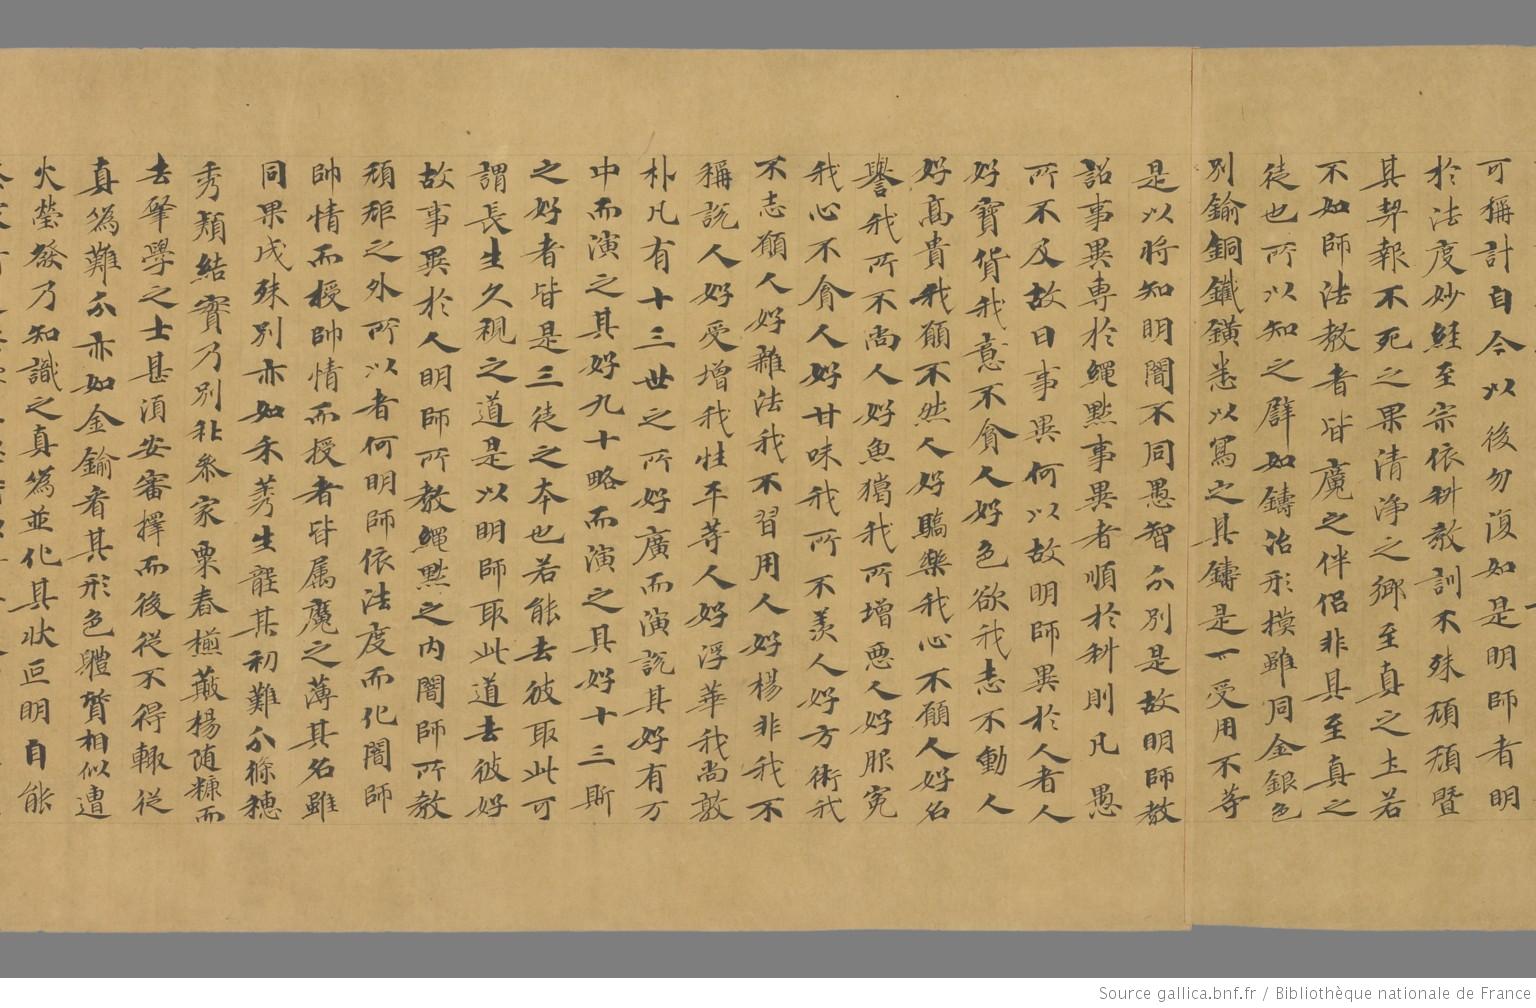 可稱計自今以後勿復如是明師者明
於法度妙經至宗依科教訓不殊頑頑暨
其契報不死之果清淨之鄉至真之土若
不如師法教者皆魔之伴侶非其至真之
徒也所以知之譬如鑄冶形模雖同金銀色
別鍮銅鐵鐄悉以寫之其鑄是一受用不等
是以將知明闇不同愚智分別是故明師教
詔事異專於繩墨事異者順於科則凡愚
所不及故曰事異何以故明師異於人者人
好寶貨我意不貪人好色欲我志不動人
好高貴我願不然人好驕樂我心不願人好名
譽我所不尚人好魚獵我所增惡人好服寃
我心不貪人好甘味我所不羨人好方術我
不志願人好雜法我不習用人好楊非我不
稱說人好受增我性平等人好浮華我尚敦
朴凡有十三世之所好廣而演說其好有万
中而演之其好九十略而演之具好十三斯
之好者皆是三徒之本也若能去彼取此可
謂長生久視之道是以明師取此道去彼好
故事異於人明師所教繩墨之內闇師所教
頑鄙之外所以者何明師依法度而化闇師
師情而授師情而授者皆属魔之薄其名雖
同果成殊別亦如禾莠生 其初難分條穗
秀頪結實乃別 家粟春 楊随糠而
去肇學之士甚須安審擇而後從不得輙從
真為難分亦如金鍮者其形色軆質相似遭
火瑩發乃知識之真為並化其狀亘明自能